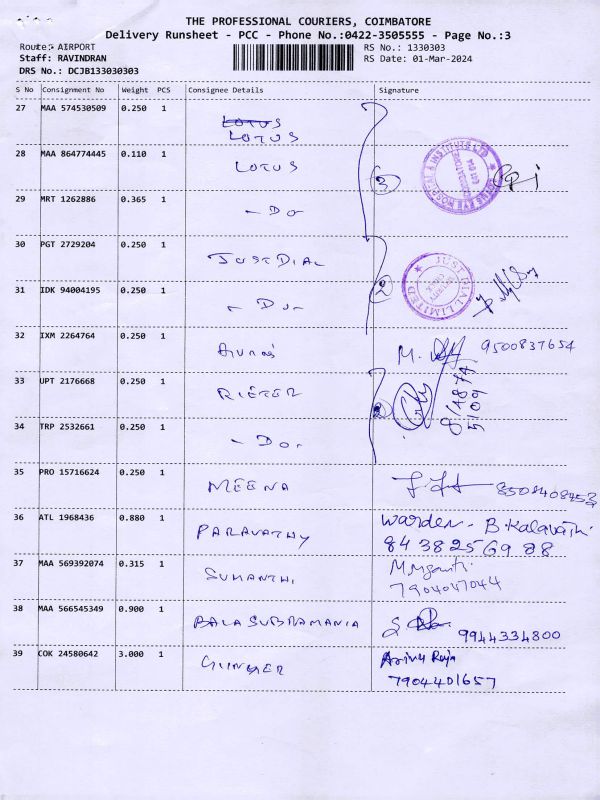 THE PROFESSIONAL COURIERS, COIMBATORE
Delivery Runsheet - PCC - Phone No.:0422-3505555 - Page No.:3
Route: AIRPORT
RS No.: 1330303
Staff: RAVINDRAN
RS Date: 01-Mar-2024
DRS No.: DCJB133030303
S No Consignment No Weight PCS Consignee Details Signature
27 MAA 574530509 0.250 1 LOTUS
LOTUS
28 MAA 864774445 0.110 1 LOTUS 3
29 MRT 1262886 0.365 1 - Do
30 PGT 2729204 0.250 1 JUSTDIAL JUST DIAL LIMITED
31 IDK 94004195 0.250 1 - Do - 2
32 IXM 2264764 0.250 1 M. 9500837654
33 UPT 2176668 0.250 1 RIETER
34 TRP 2532661 0.250 1 - Do -
35 PRO 15716624 0.250 1 MEENA
36 ATL 1968436 0.880 1 PARAVATHY Warden - B. Kalavathi
84 38 25 69 88
37 MAA 569392074 0.315 1 SUMANTHI
7904047044
38 MAA 566545349 0.900 1 BALASUBRAMANIA 9944334800
39 COK 24580642 3.000 1 Arivu Raja
7904401657